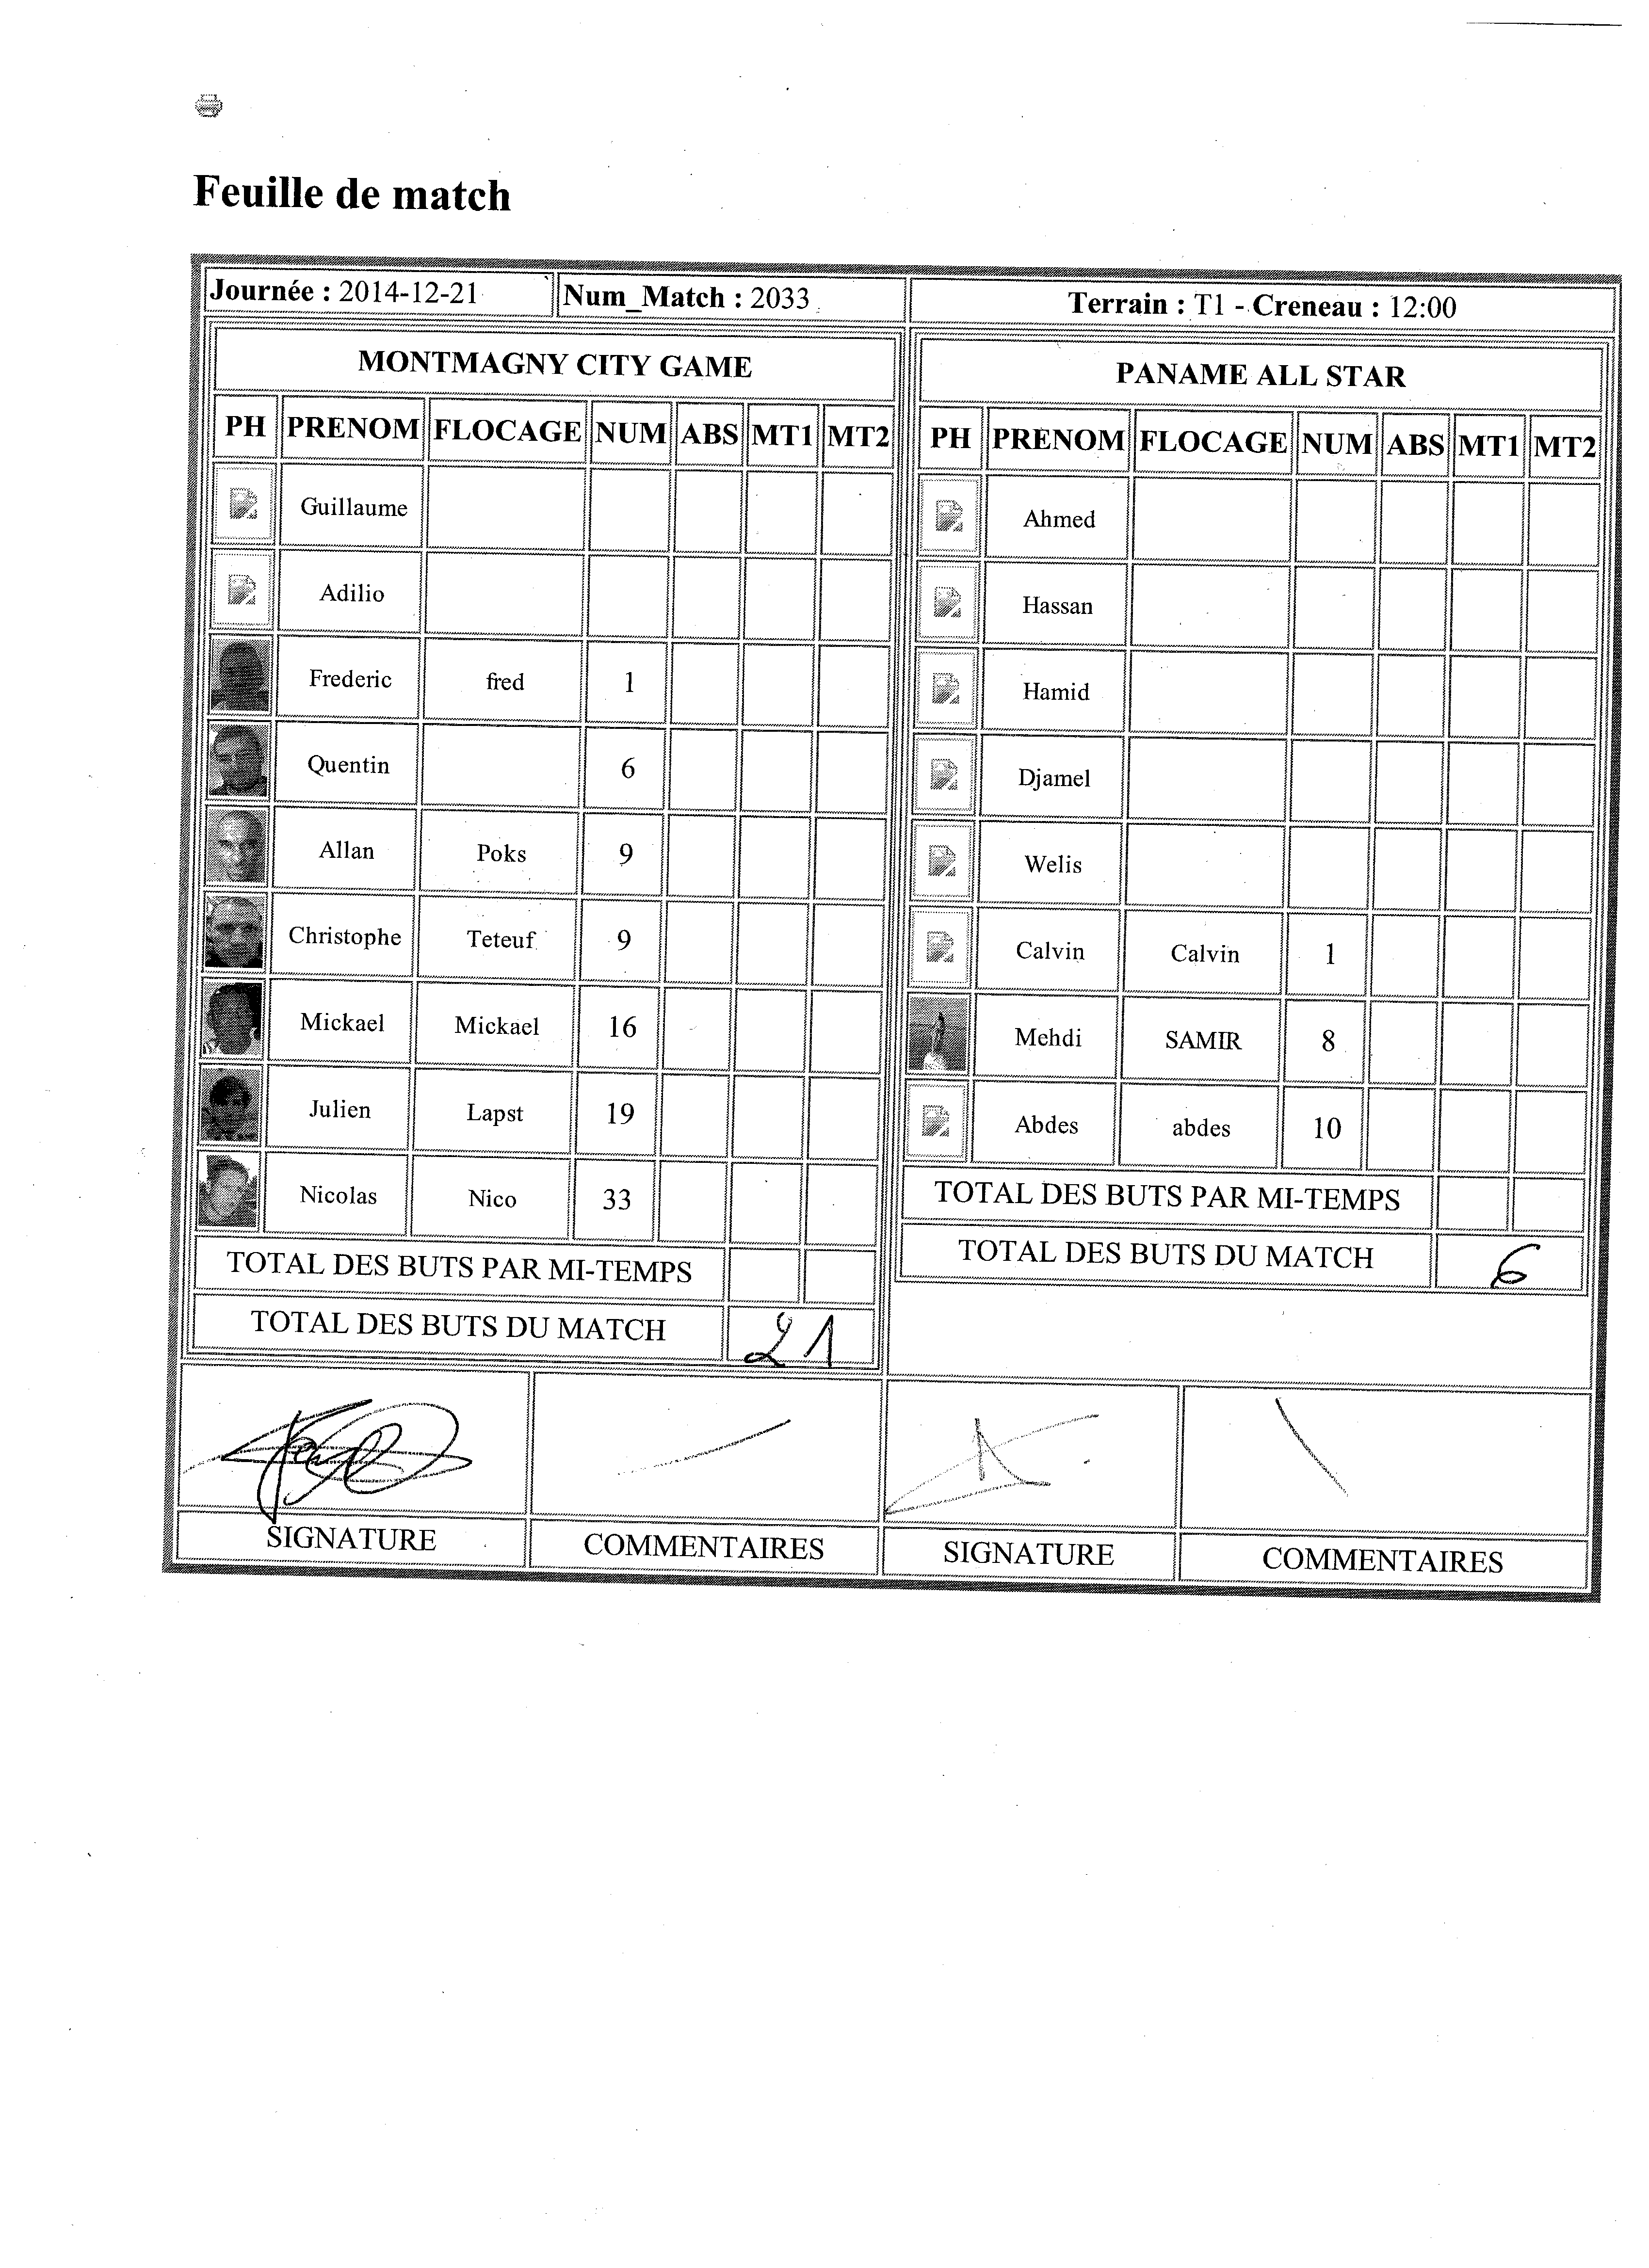 Feuille de match
Journée : 2014-12-21 Num_Match : 2033 Terrain : T1 - Creneau : 12:00
MONTMAGNY CITY GAME
PH PRENOM FLOCAGE NUM ABS MT1 MT2
Guillaume
Adilio
Frederic fred 1
Quentin 6
Allan Poks 9
Christophe Teteuf 9
Mickael Mickael 16
Julien Lapst 19
Nicolas Nico 33
TOTAL DES BUTS PAR MI-TEMPS
TOTAL DES BUTS DU MATCH 21
PANAME ALL STAR
PH PRENOM FLOCAGE NUM ABS MT1 MT2
Ahmed
Hassan
Hamid
Djamel
Welis
Calvin Calvin 1
Mehdi SAMIR 8
Abdes abdes 10
TOTAL DES BUTS PAR MI-TEMPS
TOTAL DES BUTS DU MATCH 6
SIGNATURE COMMENTAIRES SIGNATURE COMMENTAIRES